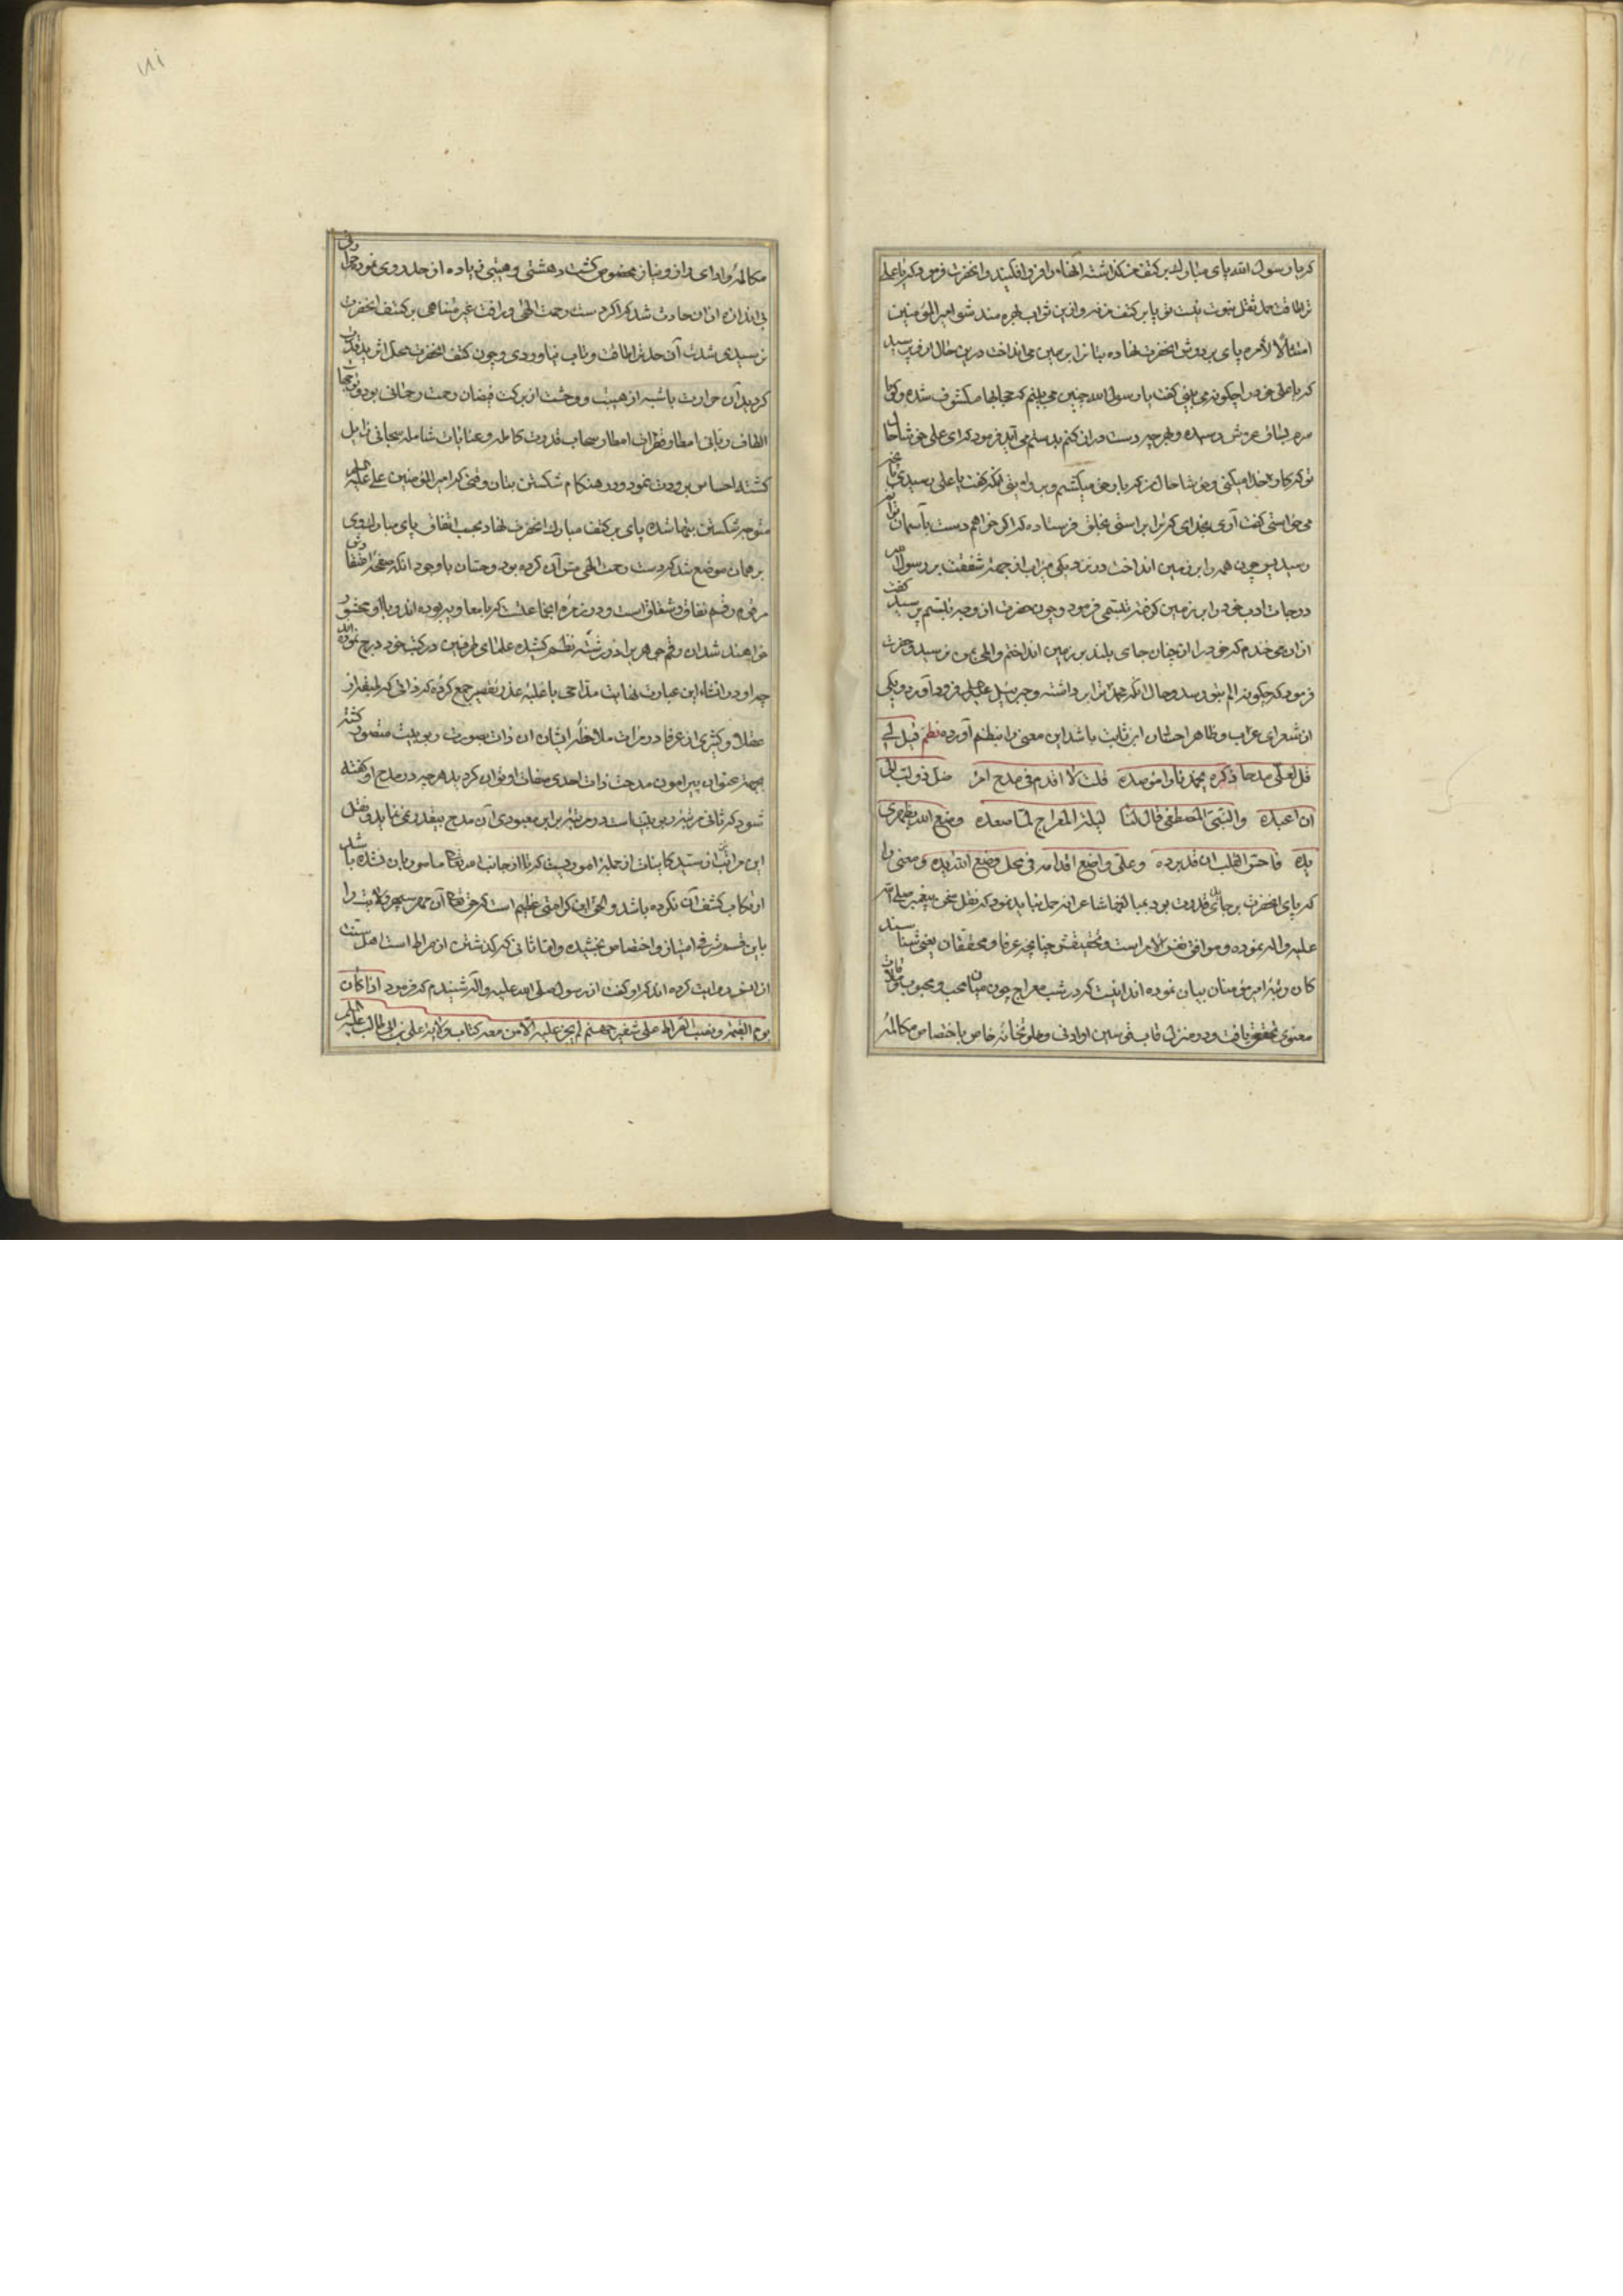 که یا رسول الله پای مبارک بر کتف من گذاشته آنها را فرو افکنید و آنحضرت فرمود که یا علی
ترا طاقت حمل ثقل نبوت نیست تو پا بر کتف من نه و ازین ثواب بهره مند شو امیر المؤمنین
امتثالا لامره پای بر دوش آنحضرت نهاده بتان را بر زمین می انداخت درین حال از وی پرسید
که یا علی خود را چگونه می بینی گفت یا رسول الله چنین می بینم که حجابها مکشوف شده و گویا
سرم بساق عرش رسیده و بهر چه دست دراز کنم بدستم می آید فرمود که ای علی خوشا حال
تو که کار خدا میکنی و خوشا حال من که بار حق میکشم و بروایتی آنکه گفت یا علی رسیدی بآنچه
می خواستی گفت آری بخدای که ترا براستی بخلق فرستاده که اگر خواهم دست بآسمان
رسید پس چون همه را بر زمین انداخت در نزدیکی میزاب از جهة شفقت بر رسول الله
درجات ادب خود را بر زمین گرفته تبسمی فرمود و چون حضرت از وجه تبسم پرسید گفت
ازان می خندم که خود را از چنان جای بلند بر زمین انداختم و المی بمن نرسید و حضرت
فرمود که چگونه الم بتو رسد و حال آنکه محمد ترا برداشته و جبرئیل علیه السلم فرود آورد و یکی
از شعرای عرب و ظاهرا حسان ابن ثابت باشد این معنی را بنظم آورده نظم قیل لی
قل لعلی مدحا ذکره یخمد نارا موصده قلت لا اقدم فی مدح امرء ضل ذو لب الی
ان اعبده والنبی المصطفی قال لنا لیلة المعراج لما صعده وضع الله بظهری
یده فاحس القلب ان قد برده وعلی واضع اقدامه فی محل وضع الله یده و معنی را
که پای آنحضرت بر جای ید قدرت بود بمبالغهای شاعرانه حمل نباید نمود که نقل سخن پیغمبر صلی الله
علیه و اله نموده و موافق نفس الامر است و تحقیقش چنانچه عرفا و محققان یعنی شناسندکان
کان رتبهٔ امیر مؤمنان بیان نموده اند اینست که در شب معراج چون میان محب و محبوب ملاقات
معنوی تحقق یافت و در منزل قاب قوسین او ادنی و خلوتخانه خاص باختصاص مکالمهٔ
مکالمهٔ و ادای راز و نیاز مخصوص گشت دهشتی و هیبتی زیاده از حد روی نمود و حرارتی
بی اندازه ازان حادث شد که اگر دست رحمت الهی و رافت غیر متناهی بر کتف آنحضرت
نرسیدی شدت آن حد تراطاقت و تاب نیاوردی و چون کتف آنحضرت محل اثر ید قدرت
گردید آن حرارت ناشیه از هیبت و وحشت از برکت فیضان رحمت رحمانی بود و ترشحات
الطاف ربانی امطار قطرات امطار سحاب قدرت کامله و عنایات شامله سبحانی زایل
گشته احساس برودت نمود و در هنگام شکستن بتان وقتی که امیر المؤمنین علی علیه السلم
متوجه شکستن بتها شده پای بر کتف مبارک آنحضرت نهاد بحسب اتفاق پای مبارک وی
بر همان موضع شد که دست رحمت الهی مس آن کرده بود و حسان با وجود آنکه صفحهٔ
مرقوم رقم نفاق و شقاق است و در زمرهٔ آنجماعتست که با معاویه بوده اند و با او محشور
خواهند شد این و قم جوهر را در رشتهٔ نظم کشیده علمای طرفین در کتب خود درج نموده اند
چه او در انشاء این عبارت نهایت مداحی با غلبهٔ عذر تقصیر جمع کرده که ذاتی که بعضی از
عقلا و کثیری از عرفا در مرات ملاحظهٔ ایشان ان ذات بصورت ربوبیت متصور گشته
بچه عنوان پیرامون مدحت ذات احدی صفات او توان گردید هر چه در مدح او گفته
شود که ثانی مرتبهٔ ربوبیت است در مرتبهٔ برابر معبودی آن مدح بیقدر می نماید و نقل
این مراتب از سید کاینات از جملهٔ امور یست که تا از جانب امر تعالی مامور بآن نشده باشد
ارتکاب کشف آن نکرده باشد و الحق این کرامتی عظیم است که حق تعالی آن مهر سپهر ولایت را
باین قسم شرفی امتیاز و اختصاص بخشیده و اما ثانی که گذشتن از صراط است اهل سنت
از انس روایت کرده اند که او گفت از رسول صلی الله علیه و اله شنیدم که فرمود اذا کان
یوم القیمة و نصب الصراط علی شفیر جهنم لم یجز علیه الا من معه کتاب ولایة علی بن ابی طالب علیه السلم